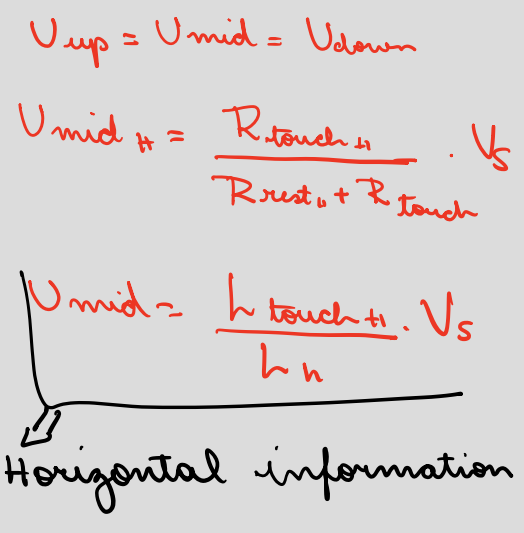 U up = U mid = U down
U mid H = R touch H / R rest H + R touch . Vs
U mid = L touch H / L h . Vs
Horizontal information